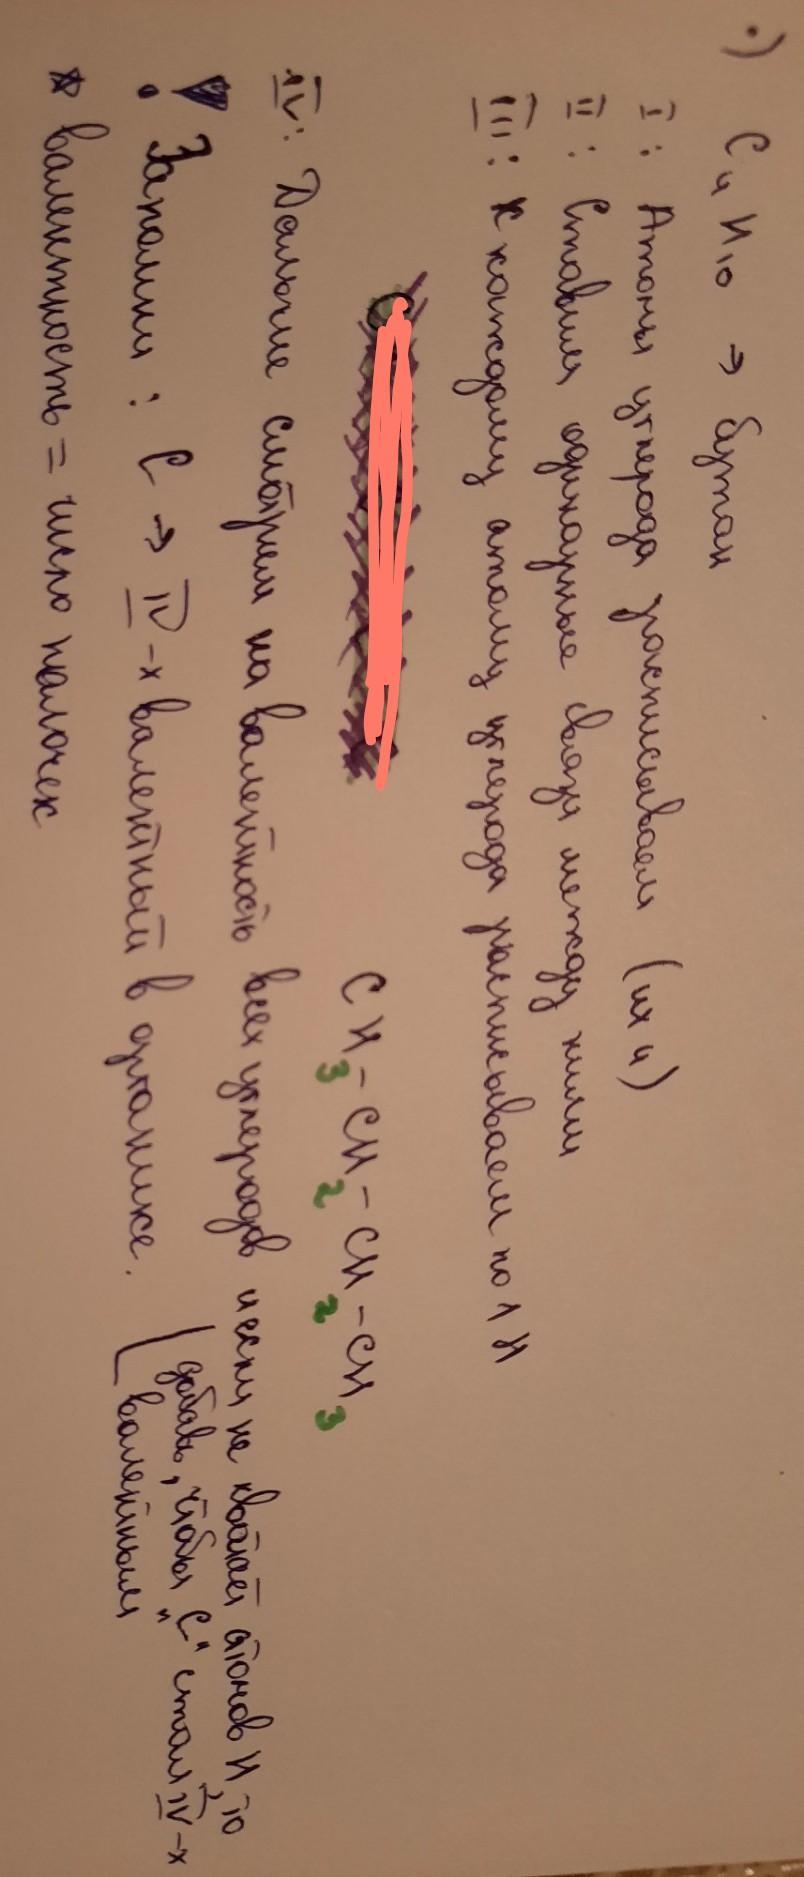 •) C₄H₁₀ → бутан
I: Атомы углерода расписываем (их 4)
II: Ставим одинарные связи между ними
III: К каждому атому углерода расписываем по 1 H
CH₃-CH₂-CH₂-CH₃
IV: Дальше смотрим на валентность всех углеродов и если не хватает атомов H, то
добавь, чтобы "C" стал IV-х
валентным
! Запомни: C → IV-х валентный в органике.
* валентность = число палочек